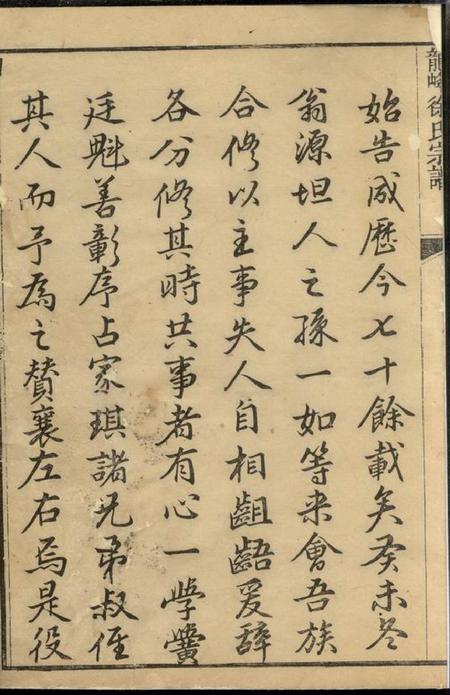 龍徐氏宗譜
始告成歷今七十餘載矣癸未冬
翁源坦人之孫一如等来會吾族
合修以主事失人自相齟齬爰辭
各分修其時共事者有心一學黌
廷魁善彰序占家琪諸兄弟叔侄
其人而予為之賛襄左右焉是役